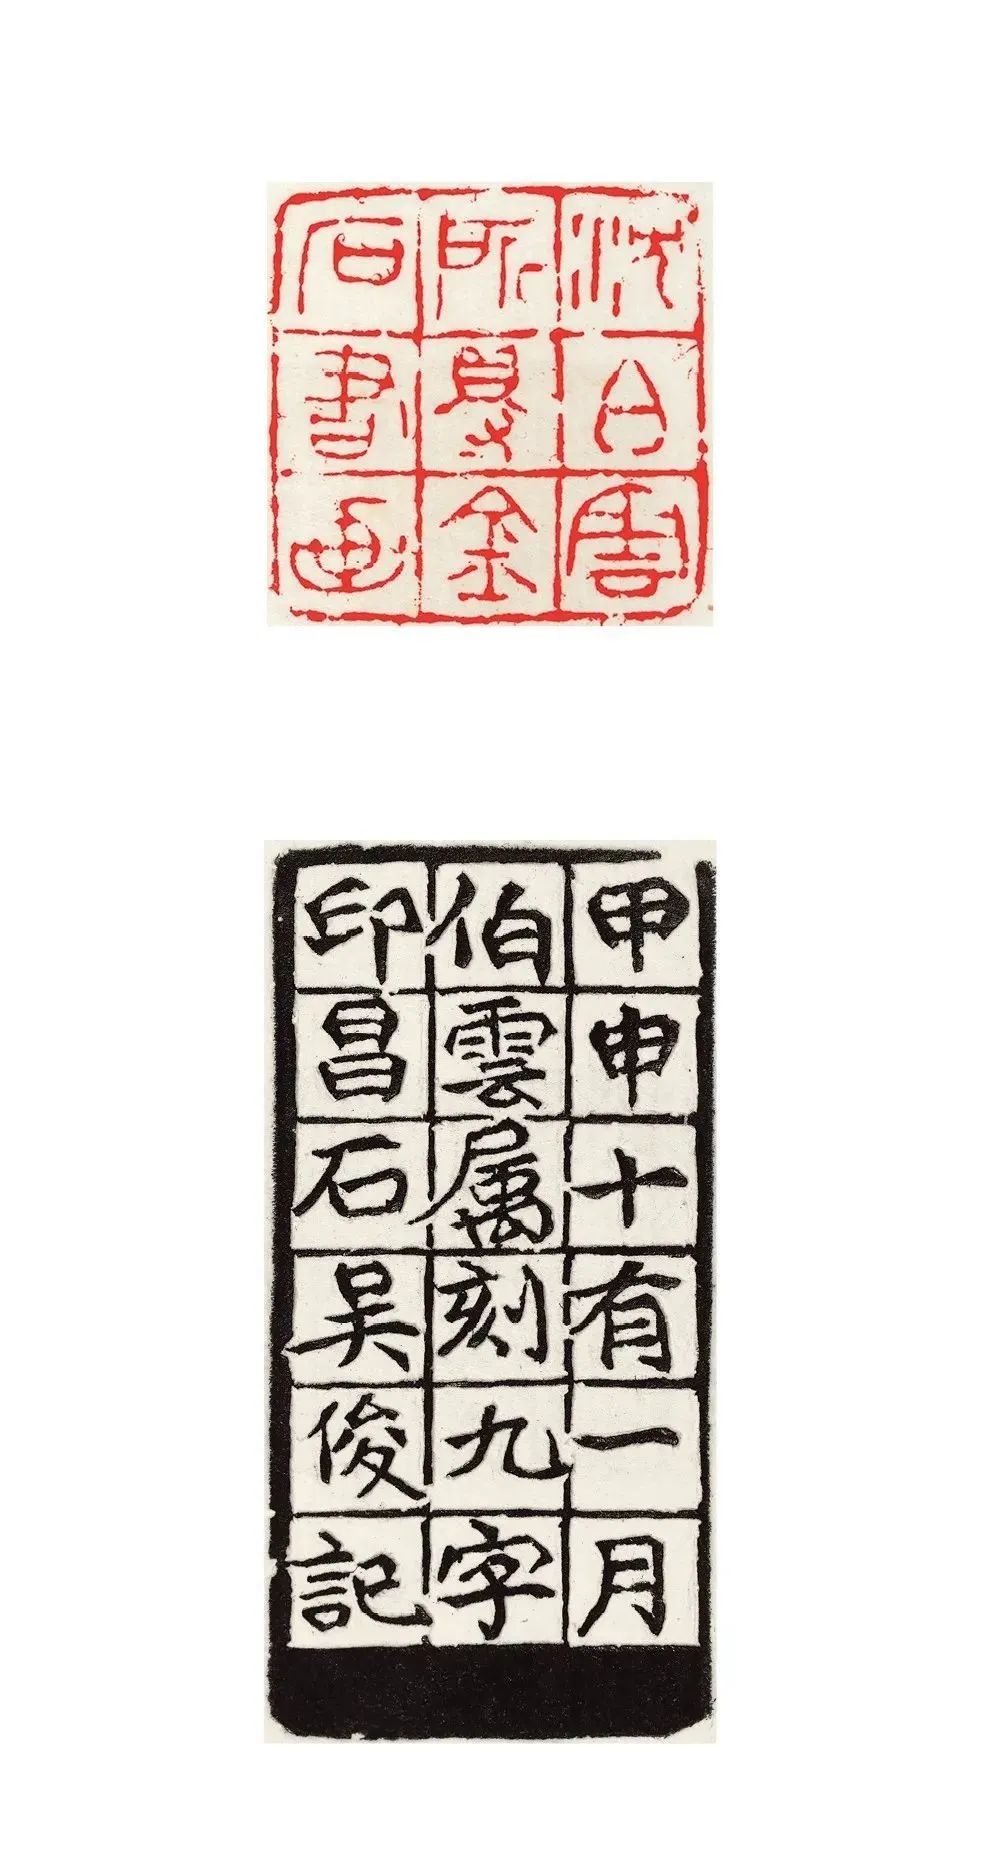 沈白雲
所得金
石書畫
甲申十有一月
伯雲属刻九字
印昌石吴俊記